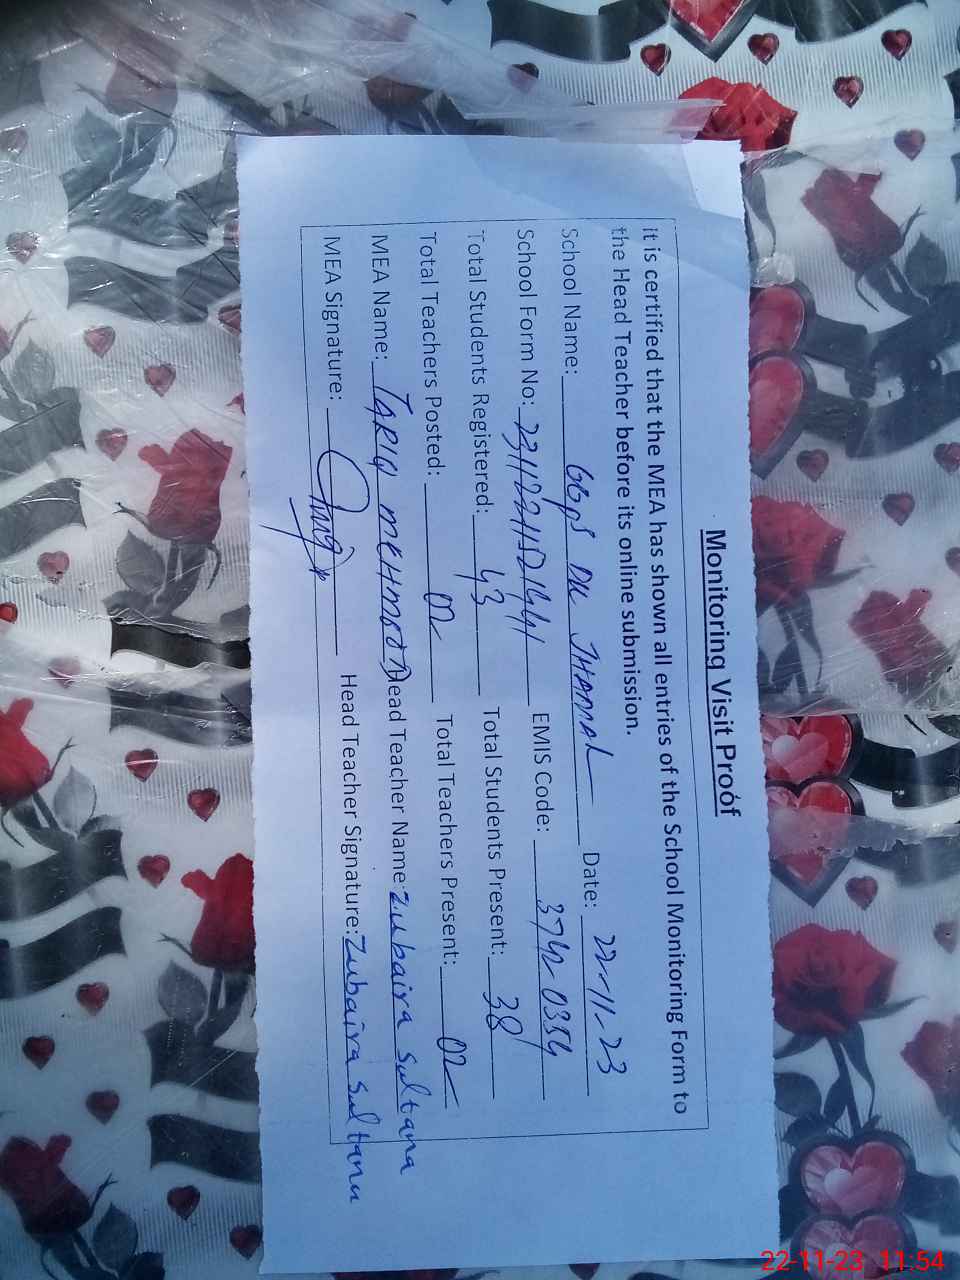 Monitoring Visit Proof
it is certified that the MEA has shown all entries of the School Monitoring Form to
the Head Teacher before its online submission.
School Name: GGPS DK THAMAL Date: 22-11-23
School Form No: EMIS Code: 3742 0354
Total Students Registered: 43 Total Students Present: 38
Total Teachers Posted: 02 Total Teachers Present: 02
MEA Name: TARIQ MEHMOOD Head Teacher Name: Zubaira Sultana
MEA Signature: Head Teacher Signature: Zubaira Sultana
22-11-23 11:54